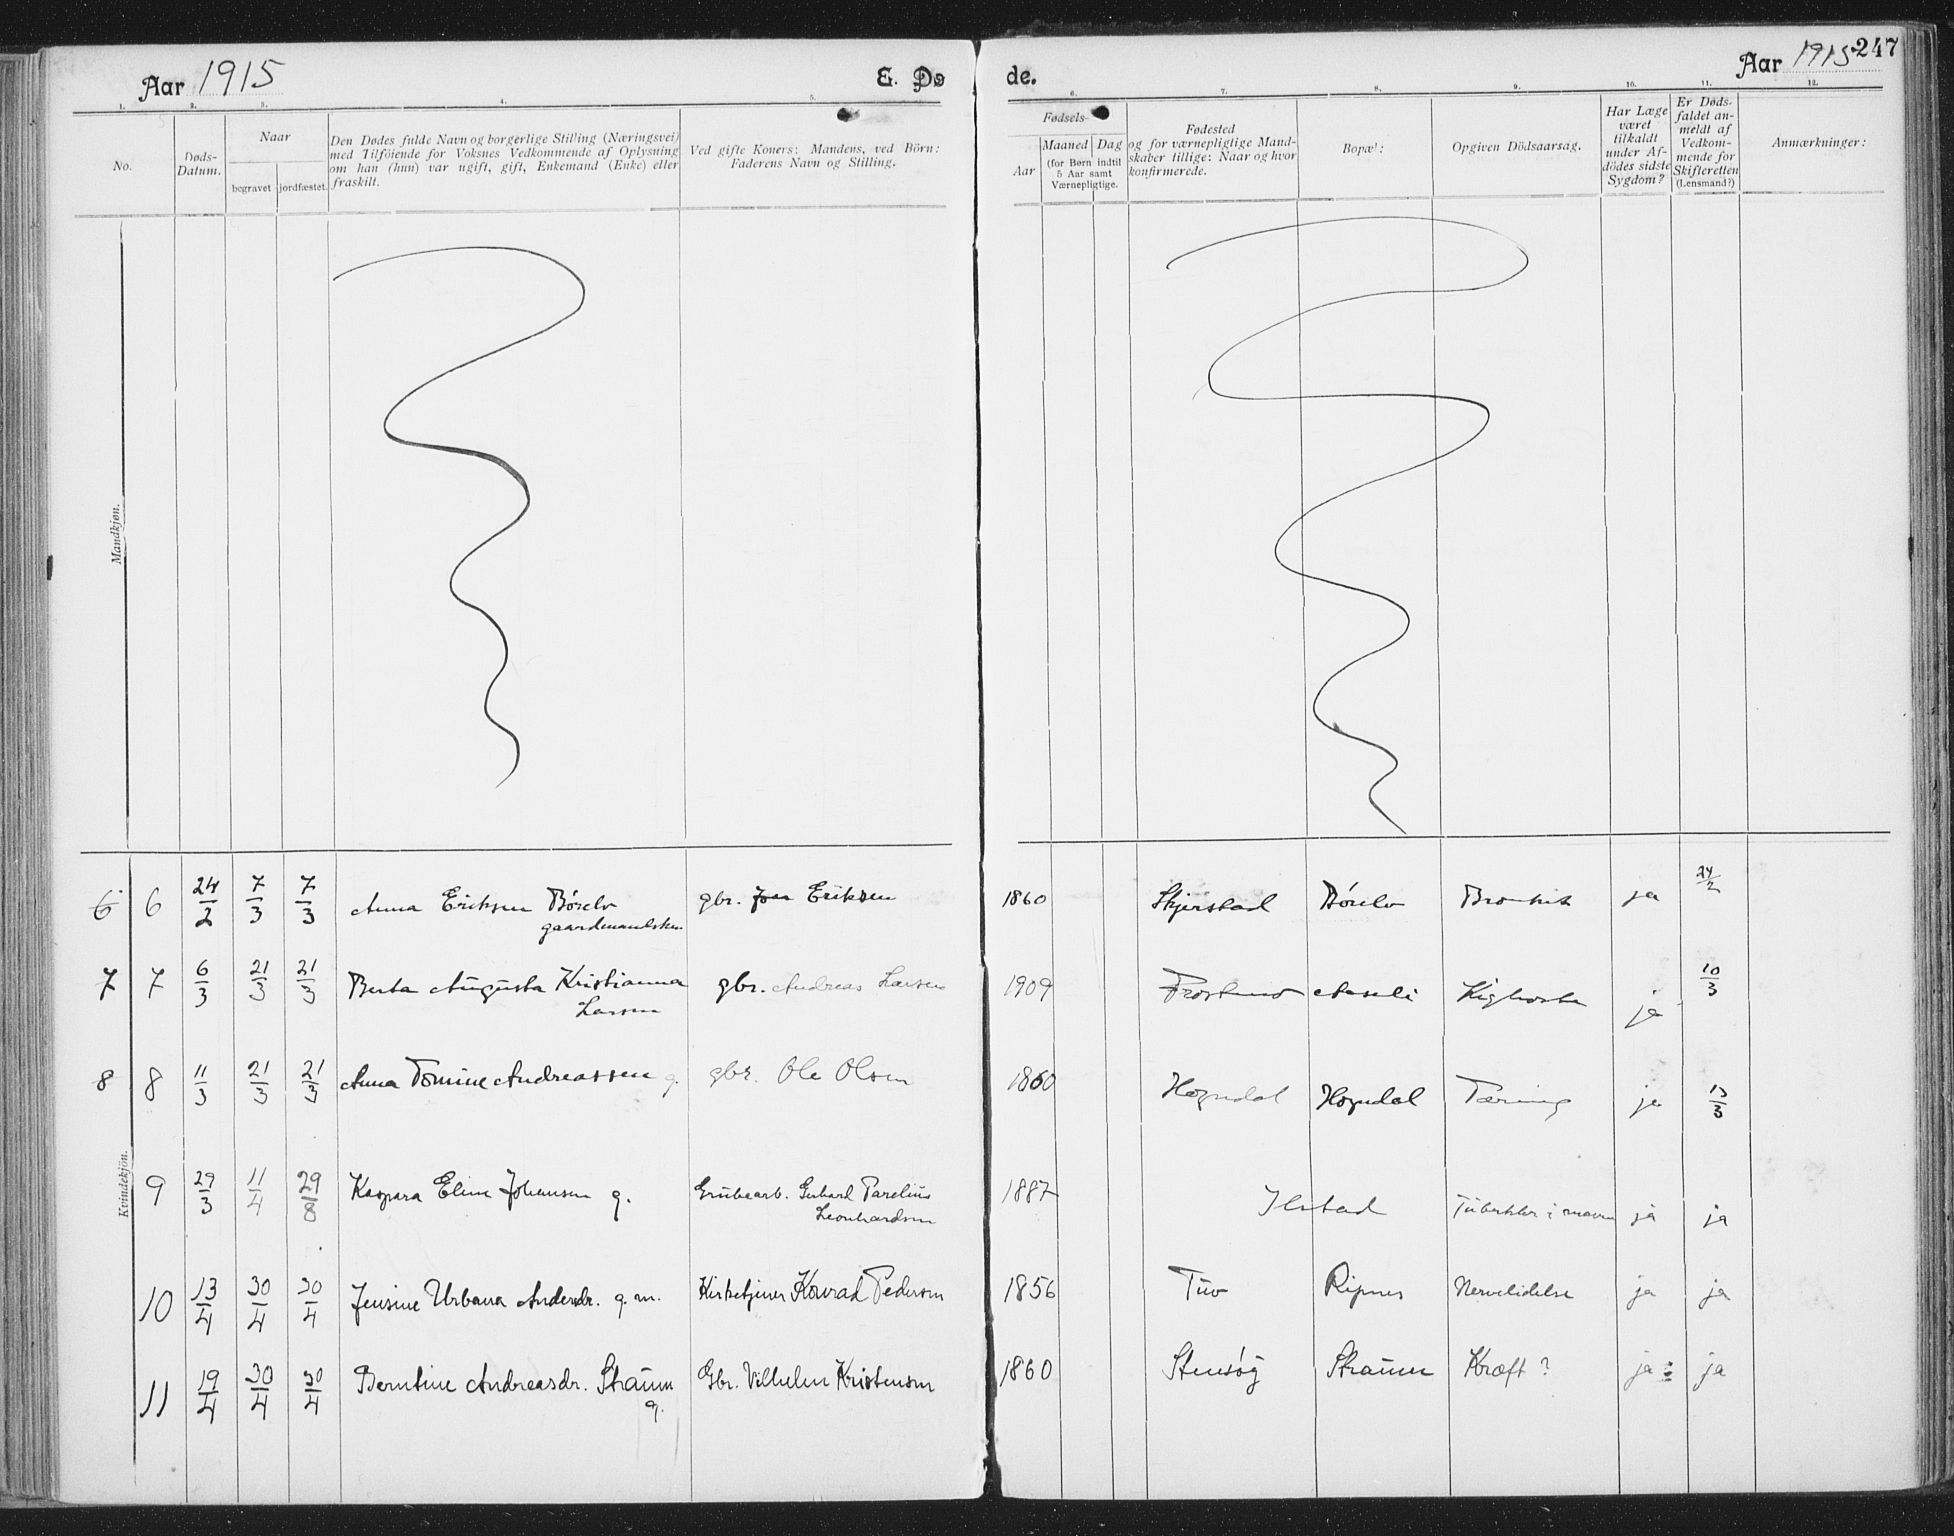 Aar 1915
E. Dø
de.
Aar 1915
247
1. 2. 3. 4. 5. 6. 7. 8. 9. 10. 11. 12.
No.
Døds-
Datum.
Naar
begravet
jordfæstet.
Den Dødes fulde Navn og borgerlige Stilling (Næringsvei)
med Tilföiende for Voksnes Vedkommende af Oplysning
om han (hun) var ugift, gift, Enkemand (Enke) eller
fraskilt.
Ved gifte Koner: Mandens, ved Börn:
Faderens Navn og Stilling.
Fødsels-
Aar
Maaned
Dag
(for Børn indtil
5 Aar samt
Værnepligtige.
Fødested
og for værnepligtige Mand-
skaber tillige: Naar og hvor
konfirmerede.
Bopæl:
Opgiven Dödsaarsag.
Har Læge
været
tilkaldt
under Af-
dödes sidste
Sygdom?
Er Døds-
faldet an-
meldt af
Vedkom-
mende for
Skifteretten
(Lensmand?)
Anmærkninger:
Mandkjøn.
Kvindekjön.
6 6 24/2 7/3 7/3 Anna Eriksen Börelv gbr. Eriksen 1860 Skjerstad Börelv ja 24/2
7 7 6/3 21/3 21/3 Berta Augusta Kristianna gbr. Andreas Larsen 1909 Kighoste ja 10/3
Larsen
8 8 11/3 21/3 21/3 Anna Tomine Andreassen g. gbr. Ole Olsen 1860 Hogndal Hogndal Tæring ja 13/3
9 29/3 11/4 29/8 Kaspara Eline Johansen g. Grubearb. Gerhard Parelius 1887 Ilstad ja ja
Leonhardsen
10 13/4 30/4 30/4 Jensine Urbana Andersdr. g. m. Kirketjener Konrad Pedersen 1856 Tuv Ripnes Nervelidelse ja ja
11 19/4 30/4 30/4 Berntine Andreasdr. Straum Gbr. Vilhelm Kristensen 1860 Stensög Straum Kræft? ja ja
g.